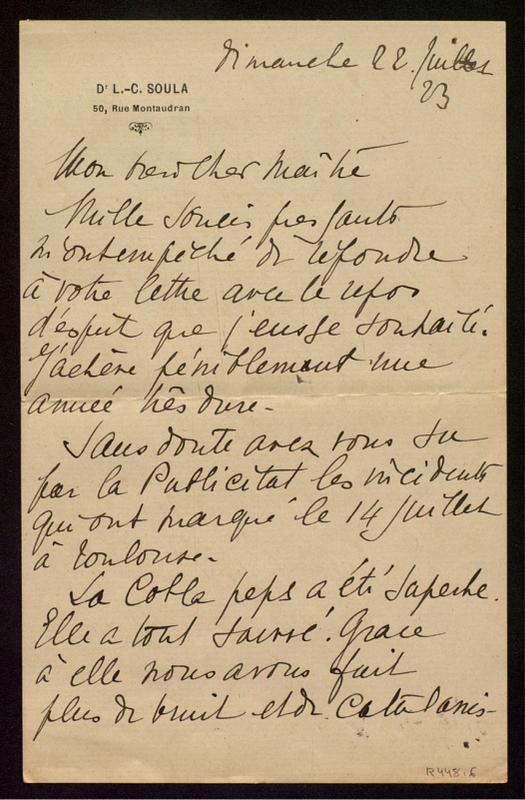 Dimanche 22 Juillet
23
Dr L.-C. SOULA
50, Rue Montaudran
Mon très cher Maître
Mille soucis pressants
m'ont empêché de répondre
à votre lettre avec le repos
d'esprit que j'eusse souhaité.
J'achève péniblement une
année très dure.
Sans doute avez vous su
par la Publicitat les incidents
qui ont marqué le 14 Juillet
à Toulouse.
La Cobla peps a été superbe.
Elle a tout sauvé. Grace
à elle nous avons fait
plus de bruit et de Catalanis-
R448.6